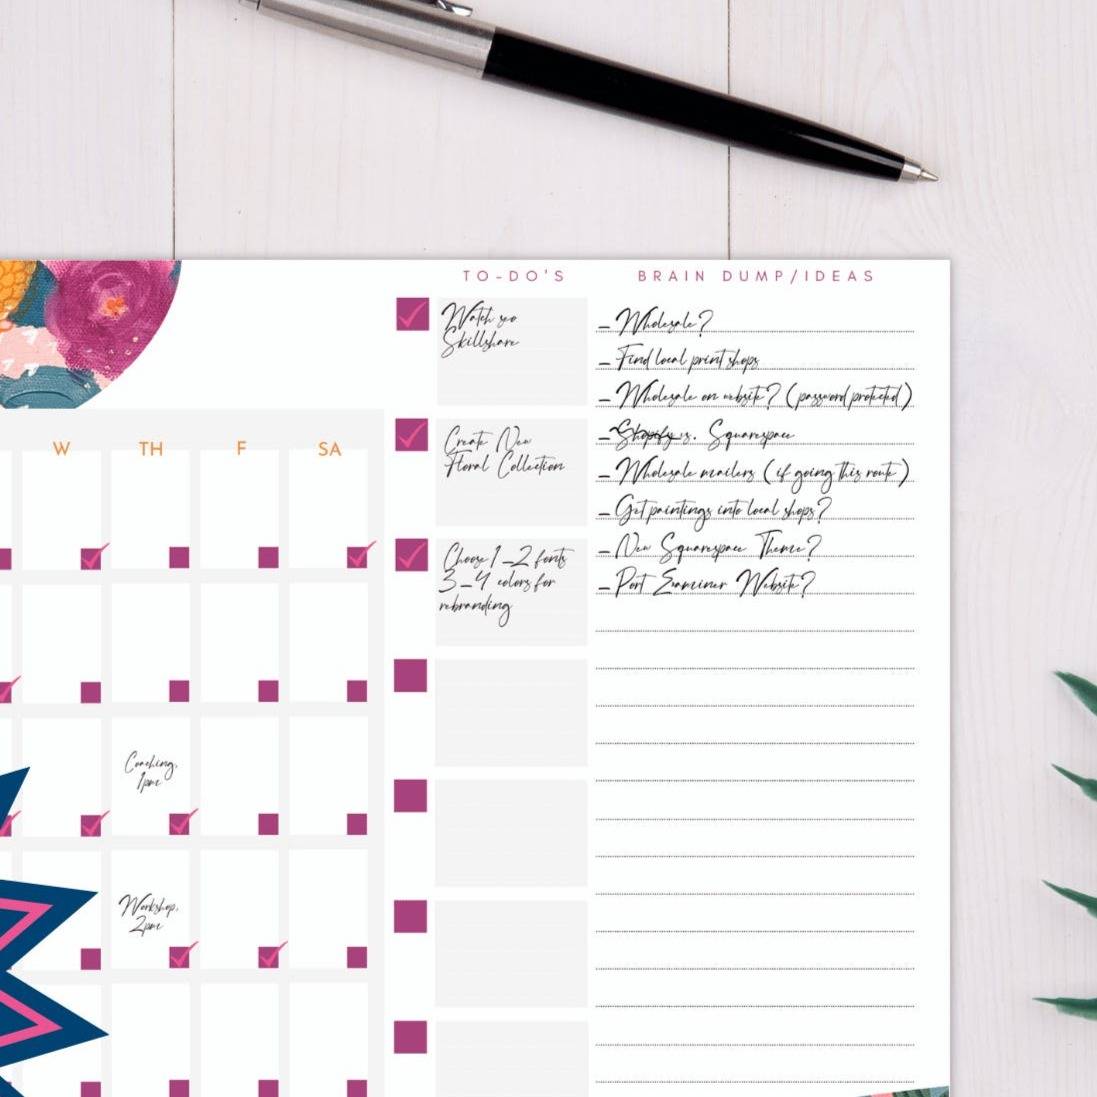 TO-DO'S
BRAIN DUMP/IDEAS
Watch seo
Skillshare
Create New
Floral Collection
Choose 1-2 fonts
3-4 colors for
rebranding
- Wholesale?
- Find local print shops
- Wholesale on website? (password protected)
- Shopify vs. Squarespace
- Wholesale mailers (if going this route)
- Get paintings into local shops?
- New Squarespace Theme?
- Port Examiner Website?
W TH F SA
Coaching,
1pm
Workshop,
2pm